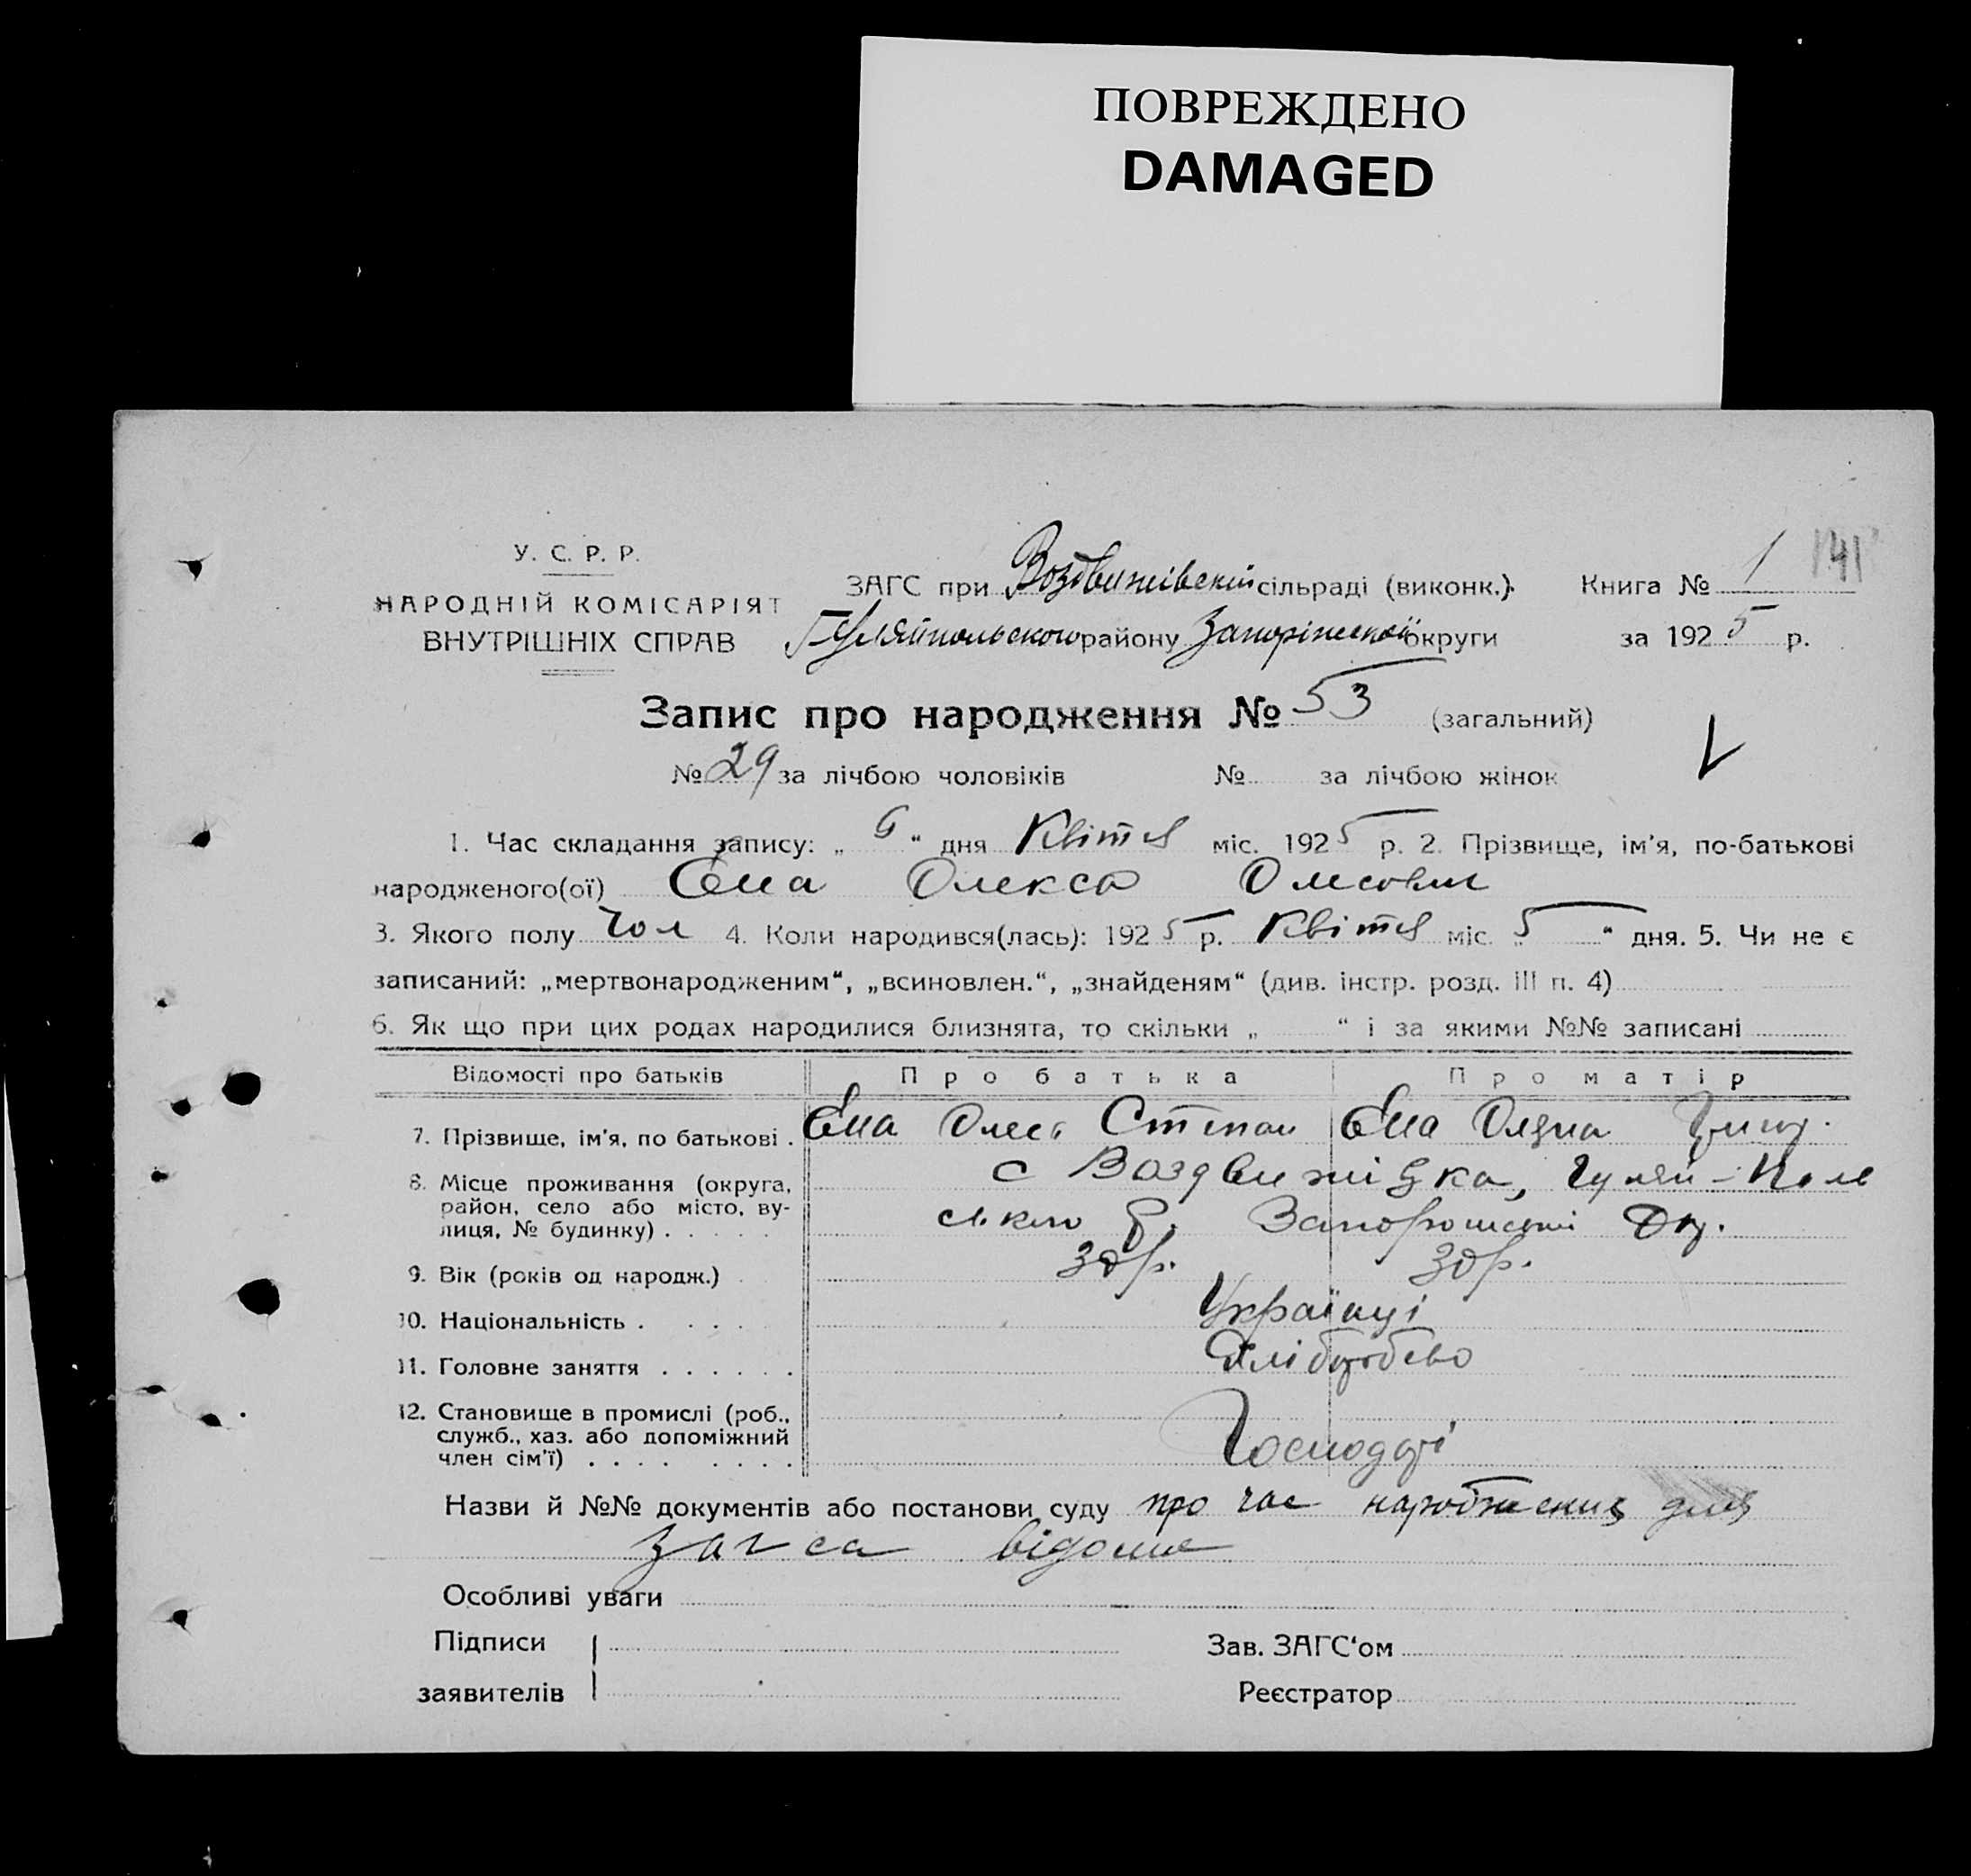 ПОВРЕЖДЕНО
DAMAGED
У. С. Р. Р.
НАРОДНІЙ КОМІСАРІЯТ
ВНУТРІШНІХ СПРАВ
ЗАГС при Воздвижівскій сільраді (виконк.). Книга № 1 141
Гуляйпольского району Запоріжской округи за 1925 р.
Запис про народження № 53 (загальний)
№ 29 за лічбою чоловіків № за лічбою жінок
1. Час складання запису: „ 6 “ дня Квітня міс. 1925 р. 2. Прізвище, ім'я, по-батькові
народженого(ої) Олекса
3. Якого полу чол 4. Коли народився(лась): 1925 р. Квітня міс. „ 5 “ дня. 5. Чи не є
записаний: „мертвонародженим“, „всиновлен.“, „знайденям“ (див. інстр. розд. III п. 4)
6. Як що при цих родах народилися близнята, то скільки „ “ і за якими №№ записані
Відомості про батьків Про батька Про матір
7. Прізвище, ім'я, по батькові . Степан
8. Місце проживання (округа, с Воздвижівка, Гуляй-Поль
район, село або місто, вулиця, № будинку) . . . . . ського р.
9. Вік (років од народж.) 30 р. 30 р.
10. Національність . . . . Українці
11. Головне заняття . . . . . . Хліборобство
12. Становище в промислі (роб.,
служб., хаз. або допоміжний
член сім'ї) . . . . . . . . Господарі
Назви й №№ документів або постанови суду про час народження для
загса відомо
Особливі уваги
Підписи Зав. ЗАГС‘ом
заявителів Реєстратор